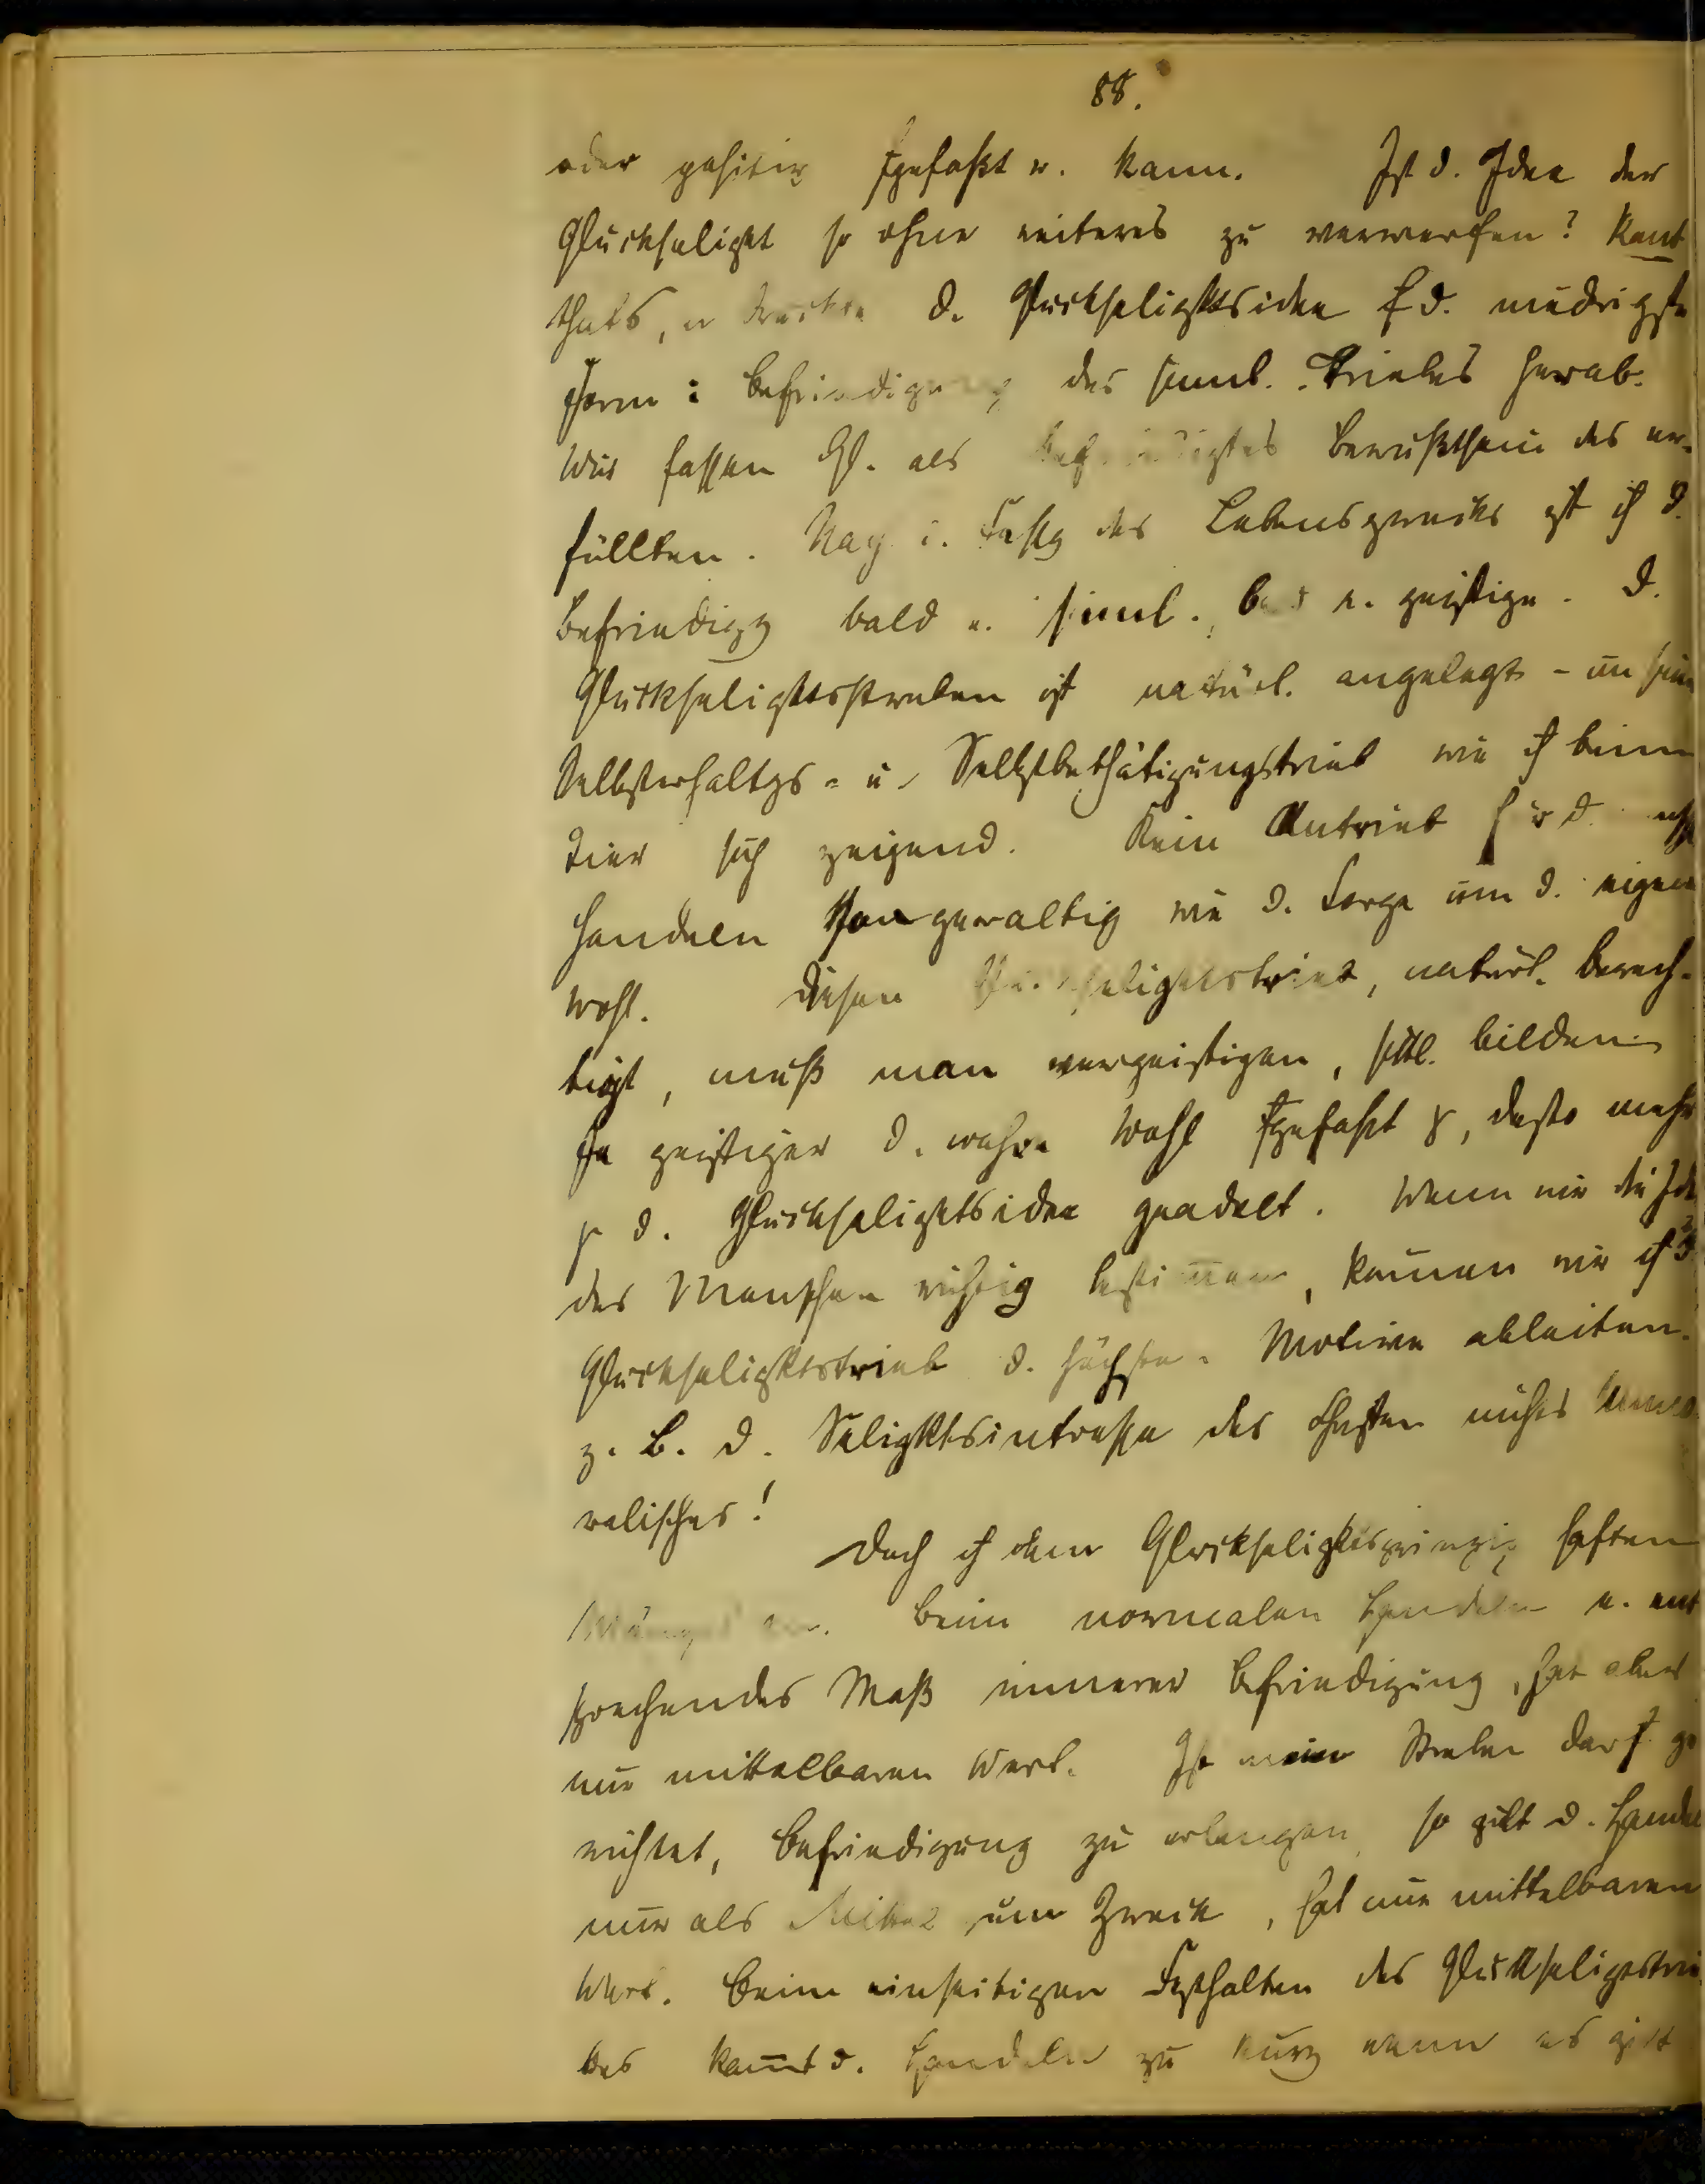 88.
oder positiv gefaßt w. kann. Ist d. Idee der
Glückseligkt so ohne weiteres zu verwerfen? Kant
thats, er drückte d. Glückseligktsidee f d. niedrigste
Form: Befriedigung des sinnl. Triebes herab.
Wir fassen Gl. als befriedigtes Bewußtsein des er-
füllten. Nach d. Fassg des Lebenszwecks ist d.
Befriedigg bald e. sinnl., bald e. geistige. D.
Glückseligktsstreben ist natürl. angelegt - im
Selbsterhaltgs- u. Selbstbethätigungstrieb wie beim
Tier sich zeigend. Kein Antrieb für d.
Handeln so gewaltig wie d. Sorge um d. eigene
Wohl. Diesen Glückseligktstrieb, natürl. berech-
tigt, muß man vergeistigen, sittl. bilden.
Je geistiger d. wahre Wohl gefaßt, desto mehr
d. Glückseligktsidee geadelt. Wenn wir die Idee
des Menschen richtig bestimmen, können wir
Glückseligktstrieb d. höchsten Motive ableiten.
z. B. d. Seligktsintresse des Christen nichts Unmo-
ralisches!
Doch dem Glückseligktsprinzip haften
Mängel an. Beim normalen Handeln e. ent
sprechendes Maß innerer Befriedigung, hat aber
nur mittelbaren Wert. Ist mein Streben darf ge
richtet, Befriedigung zu erlangen so gilt d. Handeln
nur als Mittel zum Zweck, hat nur mittelbaren
Wert. Beim einseitigen Festhalten des Glückseligktstrie
bes komt d. Handeln zu kurz wenn es gilt